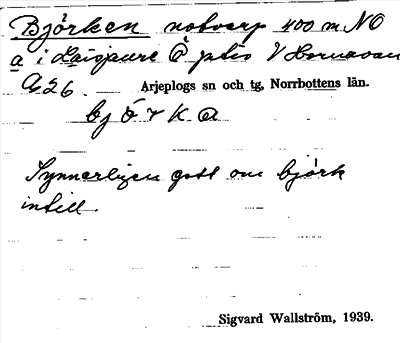 Björken notvarp 400 m NO
a i Laisjaure Ö ptio V Hornavan
G26. Arjeplogs sn och tg, Norrbottens län.
bjö̀rka
Synnerligen gott om björk
intill.
Sigvard Wallström, 1939.